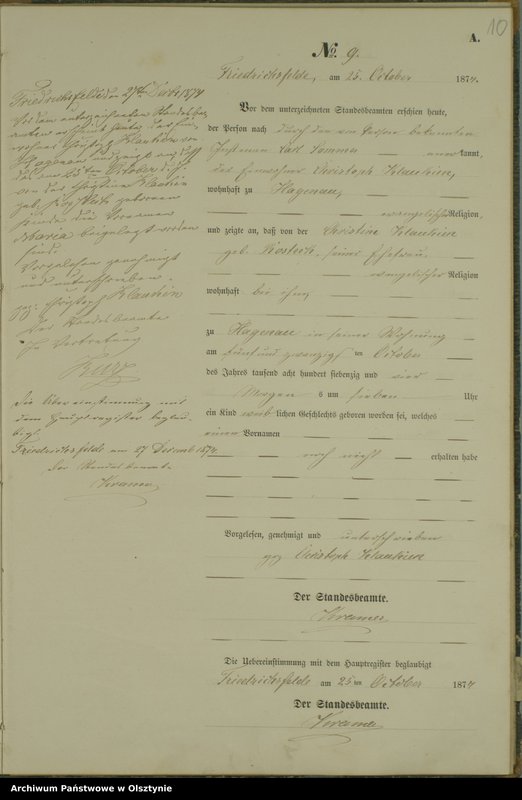 10
A.
No. 9.
Friedrichsfelde, am 25. October 1874.
Vor dem unterzeichneten Standesbeamten erschien heute,
der Person nach durch den von Person bekannten
Karl Sommer kannt,
der Einwohner Christoph Klaukien,
wohnhaft zu Hagenau,
evangelischer Religion,
und zeigte an, daß von der Christine Klaukien
geb. Kosteck, seiner Ehefrau,
evangelischer Religion
wohnhaft bei ihm,
zu Hagenau in seiner Wohnung
am fünf und zwanzigsten October
des Jahres tausend acht hundert siebenzig und vier
Morgens um sieben Uhr
ein Kind weiblichen Geschlechts geboren worden sei, welches
einen Vornamen
noch nicht erhalten habe
Vorgelesen, genehmigt und unterschrieben
gez Christoph Klaukien
Der Standesbeamte.
Kramer
Die Uebereinstimmung mit dem Hauptregister beglaubigt
Friedrichsfelde am 25ten October 1874
Der Standesbeamte.
Kramer
Friedrichsfelde den 27ten 1874
Vor dem unterzeichneten Standesbe
amten erschien heute der Ein
wohner Christoph Klaukien von
Hagenau und zeigt an, daß
das am 25ten October
von der Christine Klaukien
geb. geborenen
Kinde die Vornamen
Maria beigelegt worden
sind.
Vorgelesen genehmigt
und unterschrieben.
gez. Christoph Klaukien
Der Standesbeamte
In Vertretung
Die Übereinstimmung mit
dem Hauptregister beglau-
bigt
Friedrichsfelde am 27 Dezember 1874
Der Standesbeamte
Kramer
Archiwum Państwowe w Olsztynie